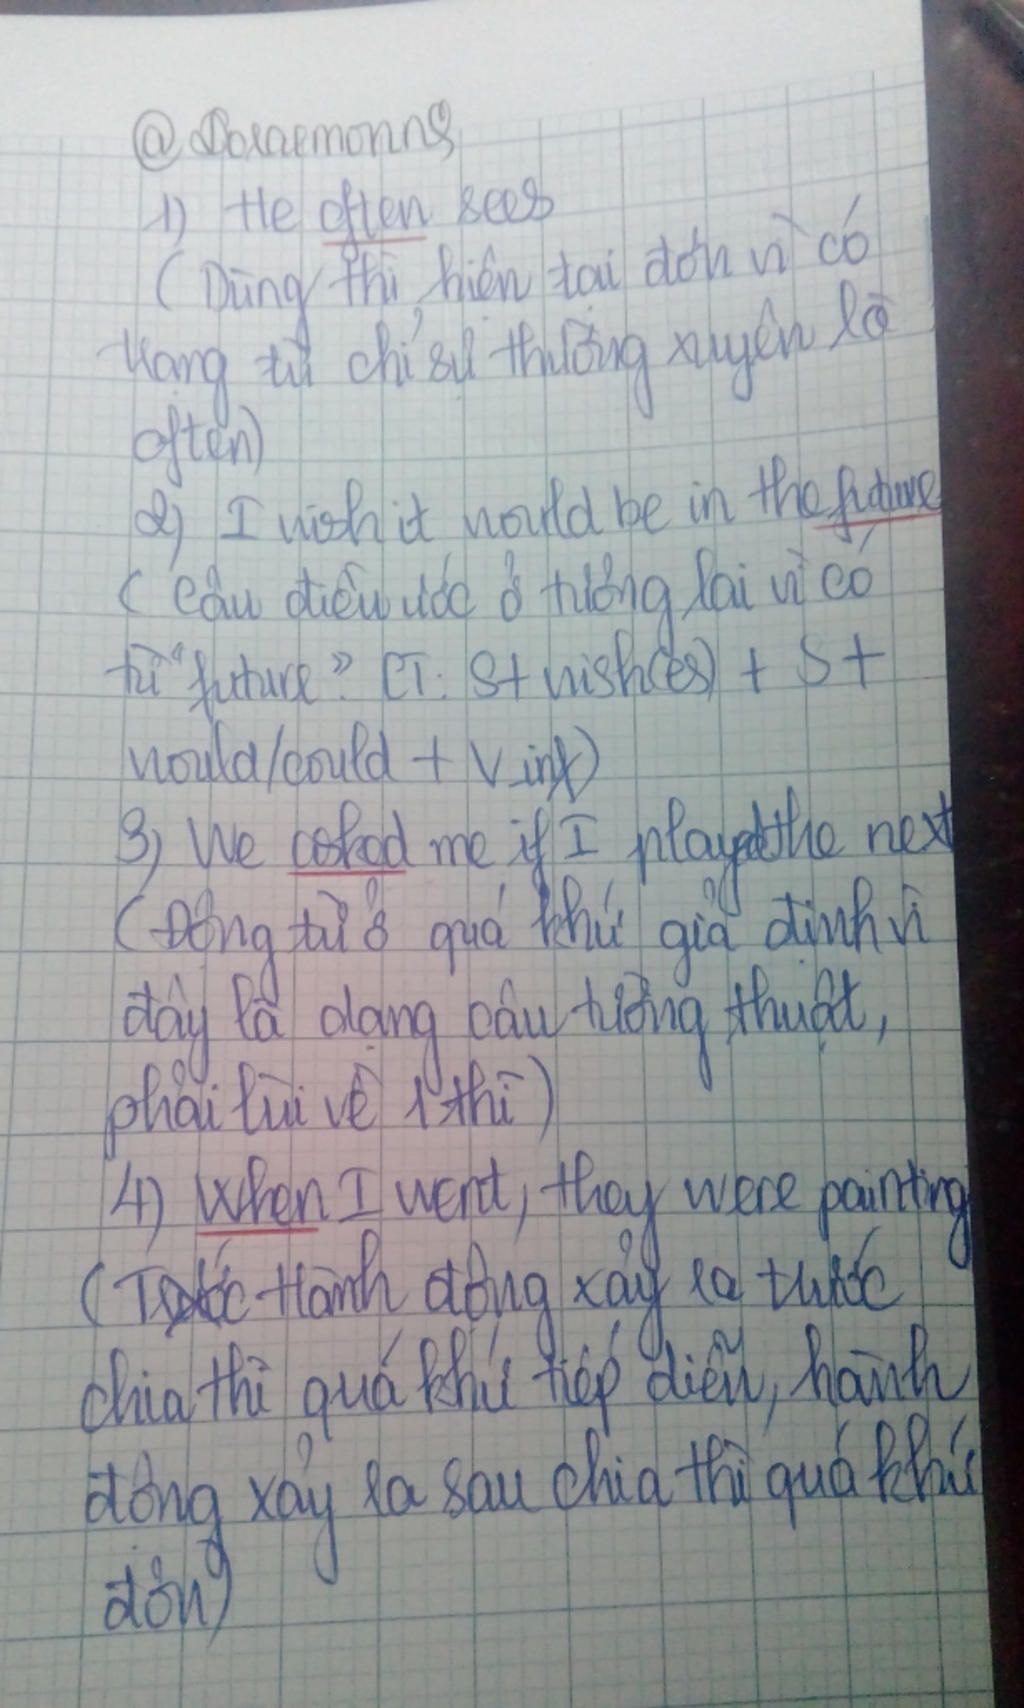 @Doraemonng
1) He often sees
(Dùng thì hiện tại đơn vì có
trạng từ chỉ sự thường xuyên là
often)
2) I wish it would be in the future
(Câu điều ước ở tương lai vì có
từ "future". CT: S + wish(es) + S +
would/could + V inf)
3) We asked me if I played the next
(Động từ ở quá khứ giả định vì
đây là dạng câu tường thuật,
phải lùi về 1 thì)
4) When I went, they were painting
(Hành động xảy ra trước
chia thì quá khứ tiếp diễn, hành
động xảy ra sau chia thì quá khứ
đơn)